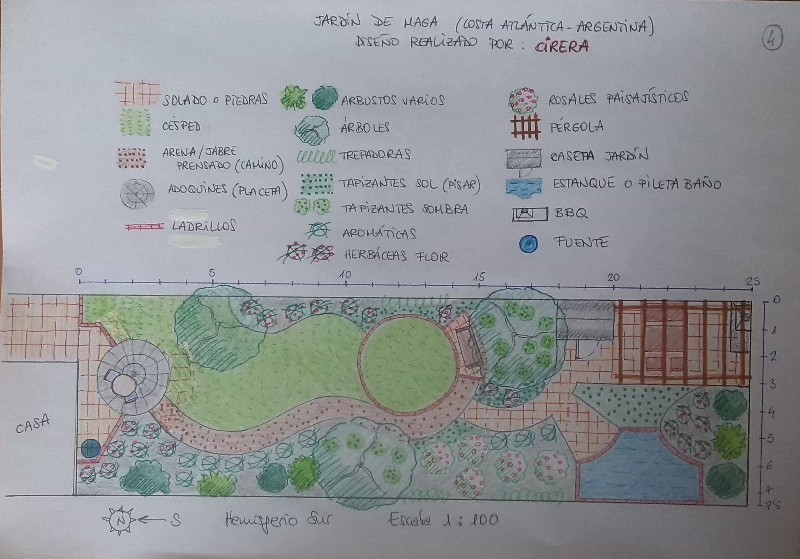 JARDÍN DE MAGA (COSTA ATLÁNTICA - ARGENTINA)
DISEÑO REALIZADO POR: CIRERA
4
SOLADO O PIEDRAS
CÉSPED
ARENA/JABRE
PRENSADO (CAMINO)
ADOQUINES (PLACETA)
LADRILLOS
ARBUSTOS VARIOS
ÁRBOLES
TREPADORAS
TAPIZANTES SOL (PISAR)
TAPIZANTES SOMBRA
AROMÁTICAS
HERBÁCEAS FLOR
ROSALES PAISAJÍSTICOS
PÉRGOLA
CASETA JARDÍN
ESTANQUE O PILETA BAÑO
BBQ
FUENTE
0 5 10 15 20 25
0
1
2
3
4
5
6
7
7'5
CASA
N ← S Hemisferio Sur Escala 1:100